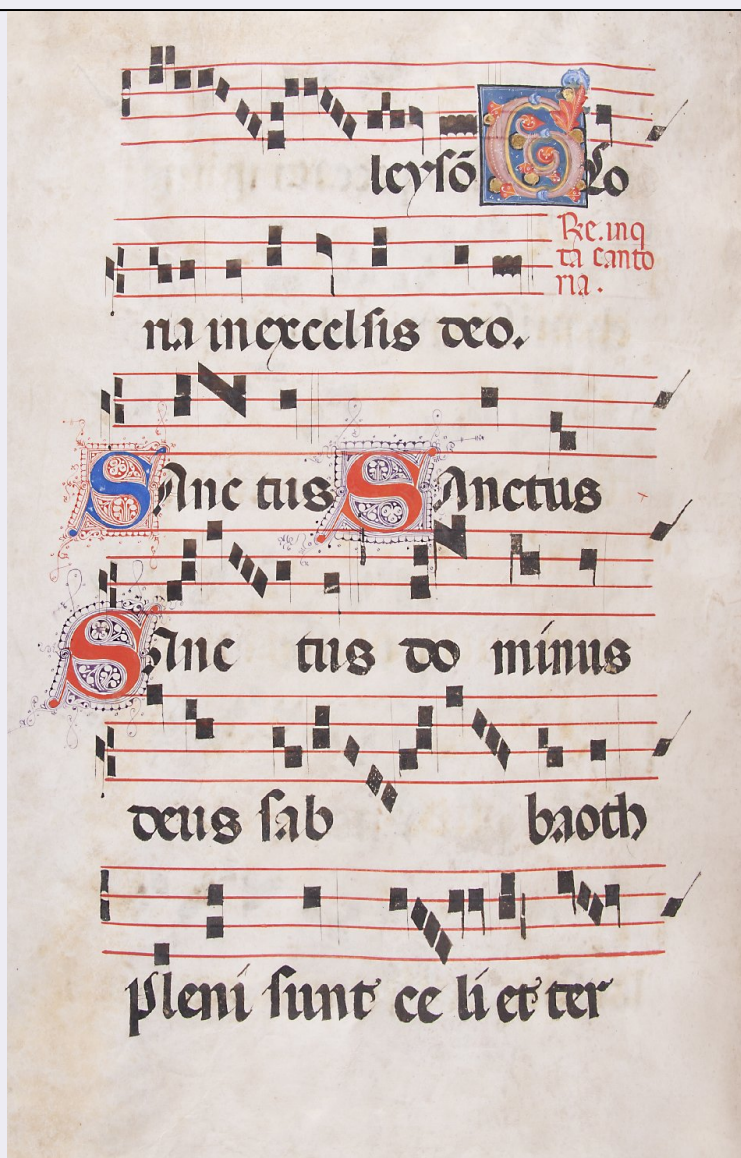 leysō Glo
Re.inq
ta canto
ria.
ria in excelsis deo.
Sanc tus Sanctus
Sanc tus do minus
deus sab baoth
Pleni sunt ce li et ter